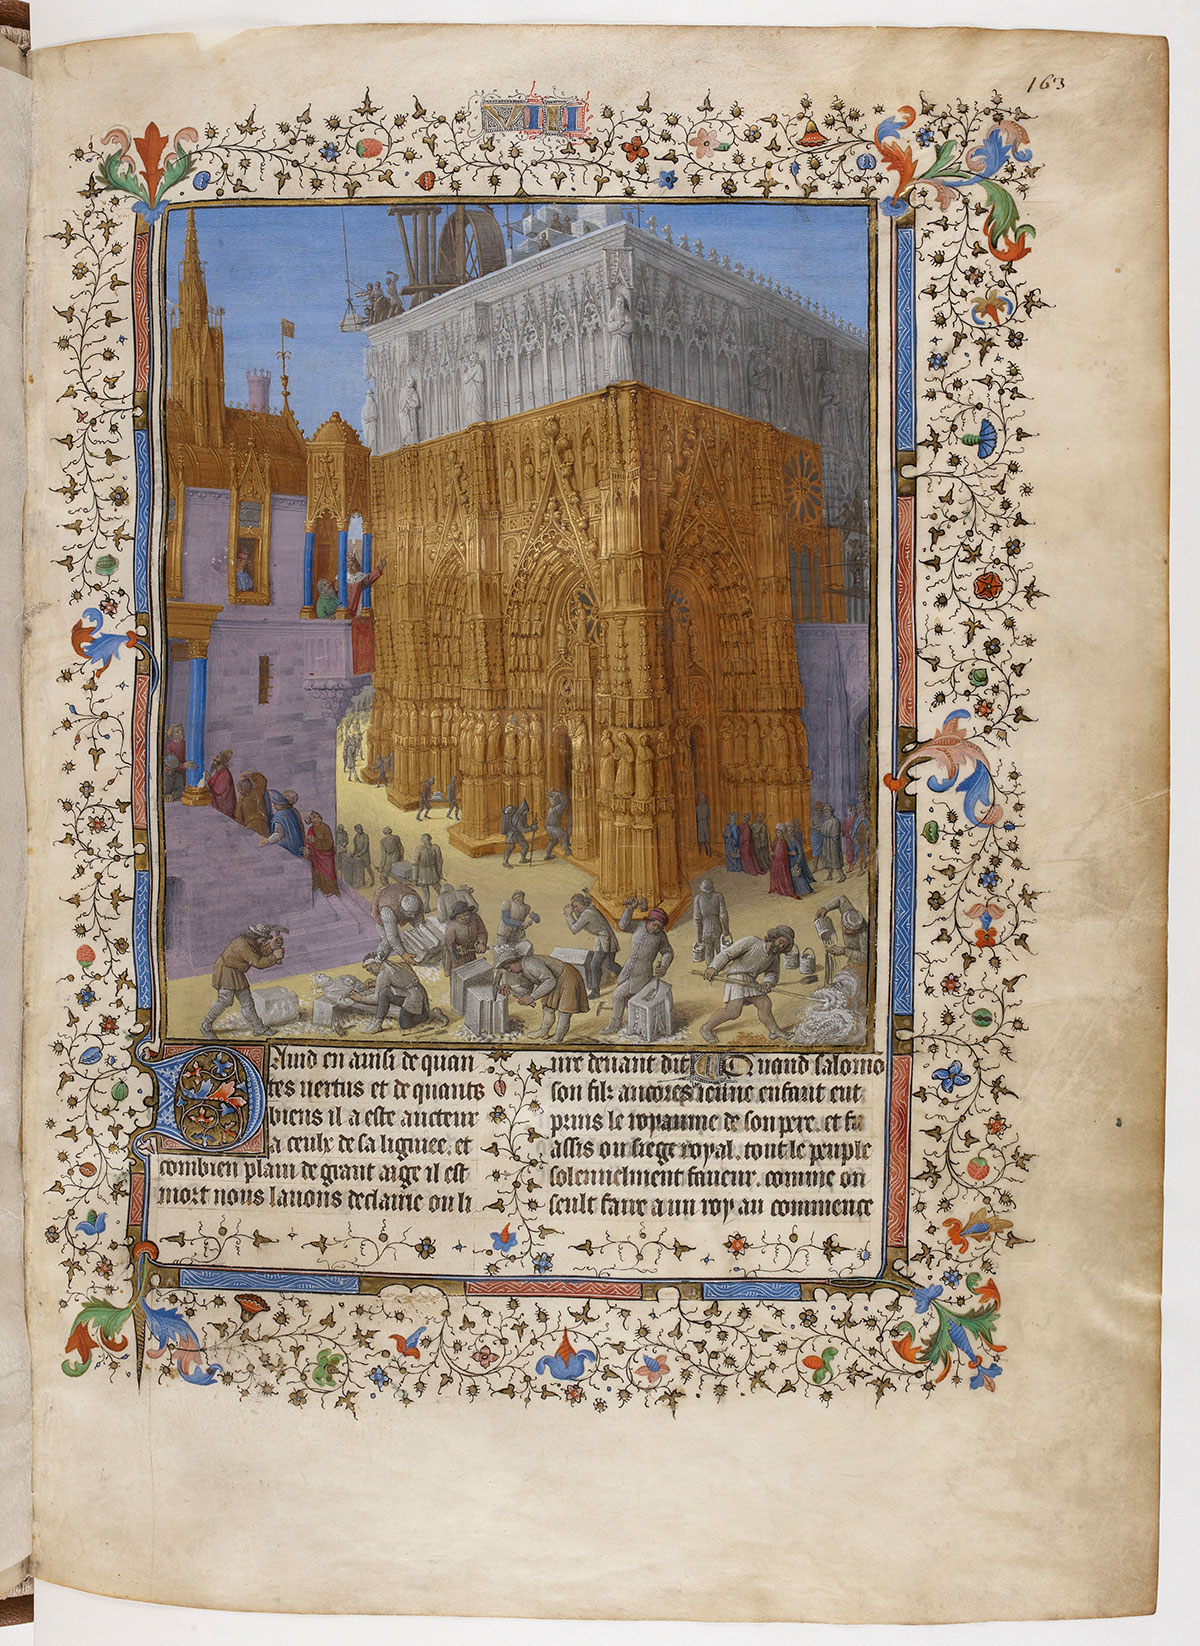 163
VIII
Dauid en ainsi de quan
tes vertus et de quants
biens il a este aucteur
a ceulx de sa lignee. et
combien plain de grant aige il est
mort nous lauons declairie ou li
ure deuant dit Quand salomō
son filz ancores ieune enfant eut
prins le royaume de son pere. et fu
assis ou siege royal. tout le peuple
solennelment faueur. comme on
seult faire a un roy au commence